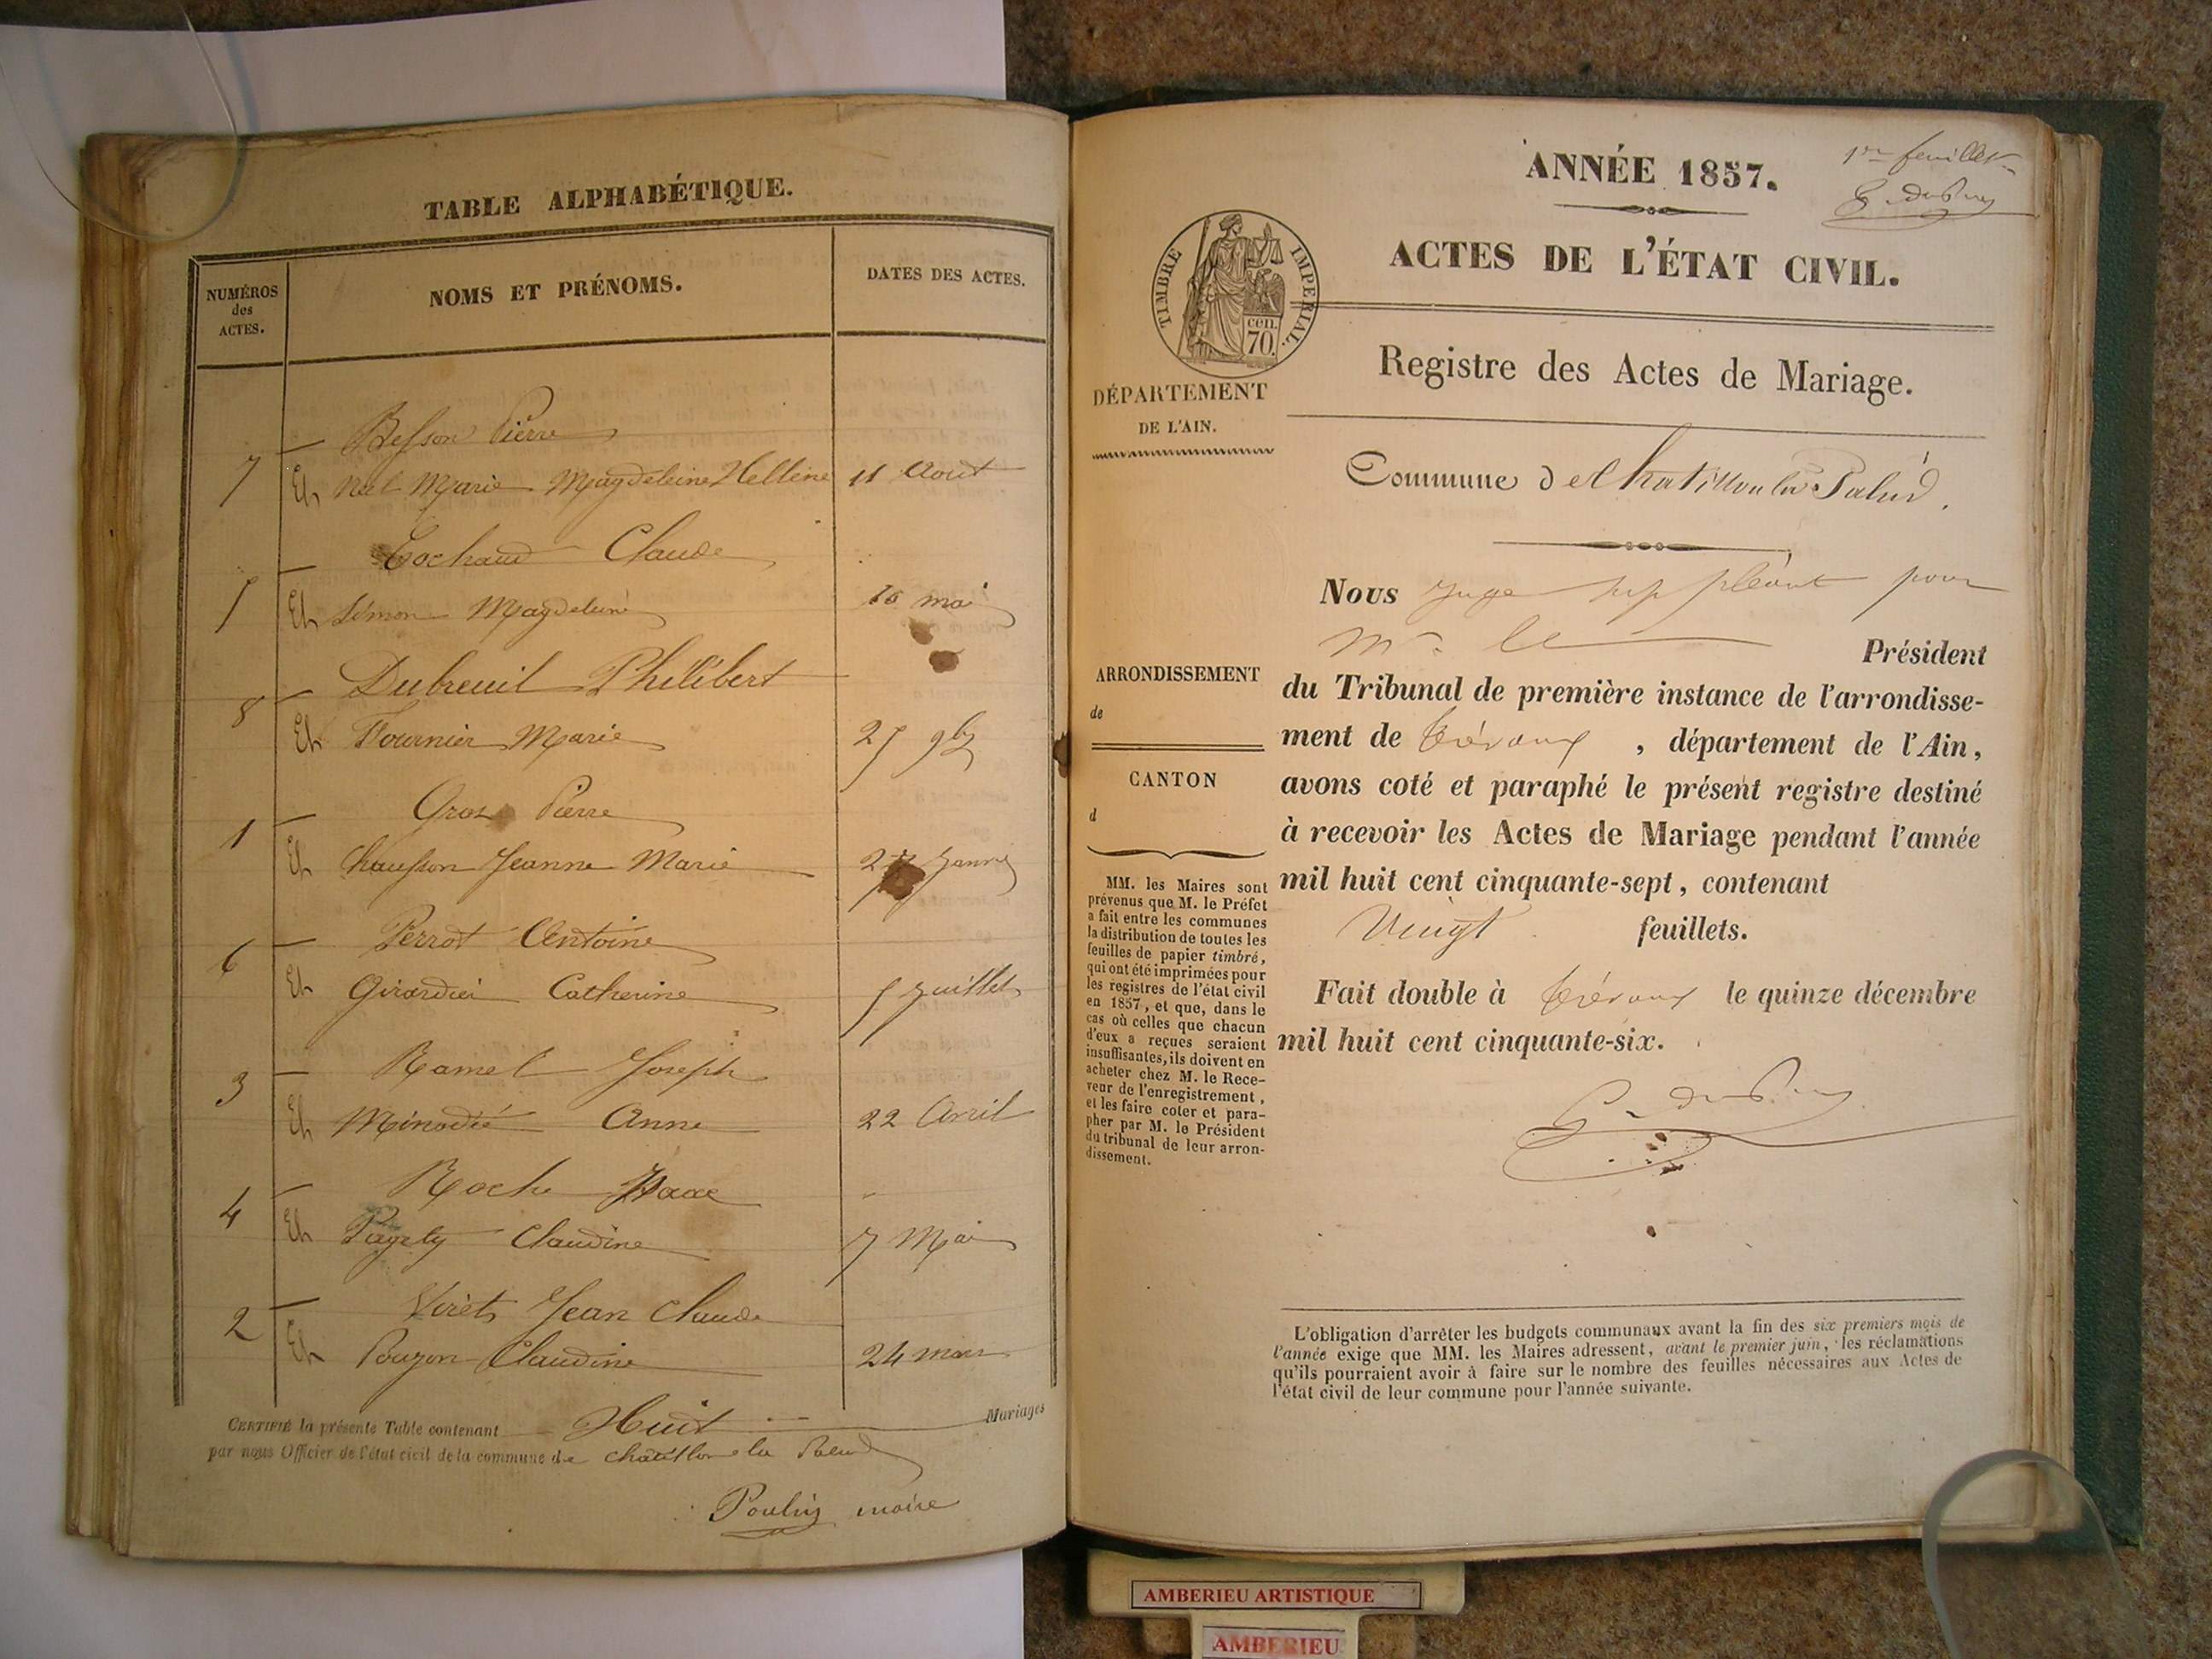 TABLE ALPHABÉTIQUE.
NUMÉROS
des
ACTES.
NOMS ET PRÉNOMS.
DATES DES ACTES.
Besson Pierre
7 Et Marie Magdeleine Hellene 11 Aout
Cochaud Claude
5 Et Simon Magdelene 16 mai
Dubreuil Philibert
8 Et Fournier Marie 25 9bre
Gros Pierre
1 Et Chausson Jeanne Marie
Perrot Antoine
6 Et Girardier Catherine 5 Juillet
Ramel Joseph
3 Et Anne 22 Avril
Roche
4 Et Claudine 7 Mai
Viret Jean Claude
2 Et Pouzon Claudine 24 mars
CERTIFIÉ la présente Table contenant Huit Mariages
par nous Officier de l'état civil de la commune de Châtillon la Palud
maire
1er feuillet
ANNÉE 1857.
ACTES DE L'ÉTAT CIVIL.
TIMBRE IMPERIAL.
cen.
70.
Registre des Actes de Mariage.
DÉPARTEMENT
DE L'AIN.
Commune de Chatillon la Palud.
Nous Juge suppléant pour
Mr. le Président
ARRONDISSEMENT
de
CANTON
d
du Tribunal de première instance de l'arrondisse-
ment de Trévoux, département de l'Ain,
avons coté et paraphé le présent registre destiné
à recevoir les Actes de Mariage pendant l'année
mil huit cent cinquante-sept, contenant
Vingt feuillets.
Fait double à Trévoux le quinze décembre
mil huit cent cinquante-six.
MM. les Maires sont
prévenus que M. le Préfet
a fait entre les communes
la distribution de toutes les
feuilles de papier timbré,
qui ont été imprimées pour
les registres de l'état civil
en 1857, et que, dans le
cas où celles que chacun
d'eux a reçues seraient
insuffisantes, ils doivent en
acheter chez M. le Rece-
veur de l'enregistrement,
et les faire coter et para-
pher par M. le Président
du tribunal de leur arron-
dissement.
L'obligation d'arrêter les budgets communaux avant la fin des six premiers mois de
l'année exige que MM. les Maires adressent, avant le premier juin, les réclamations
qu'ils pourraient avoir à faire sur le nombre des feuilles nécessaires aux Actes de
l'état civil de leur commune pour l'année suivante.
AMBERIEU ARTISTIQUE
AMBERIEU